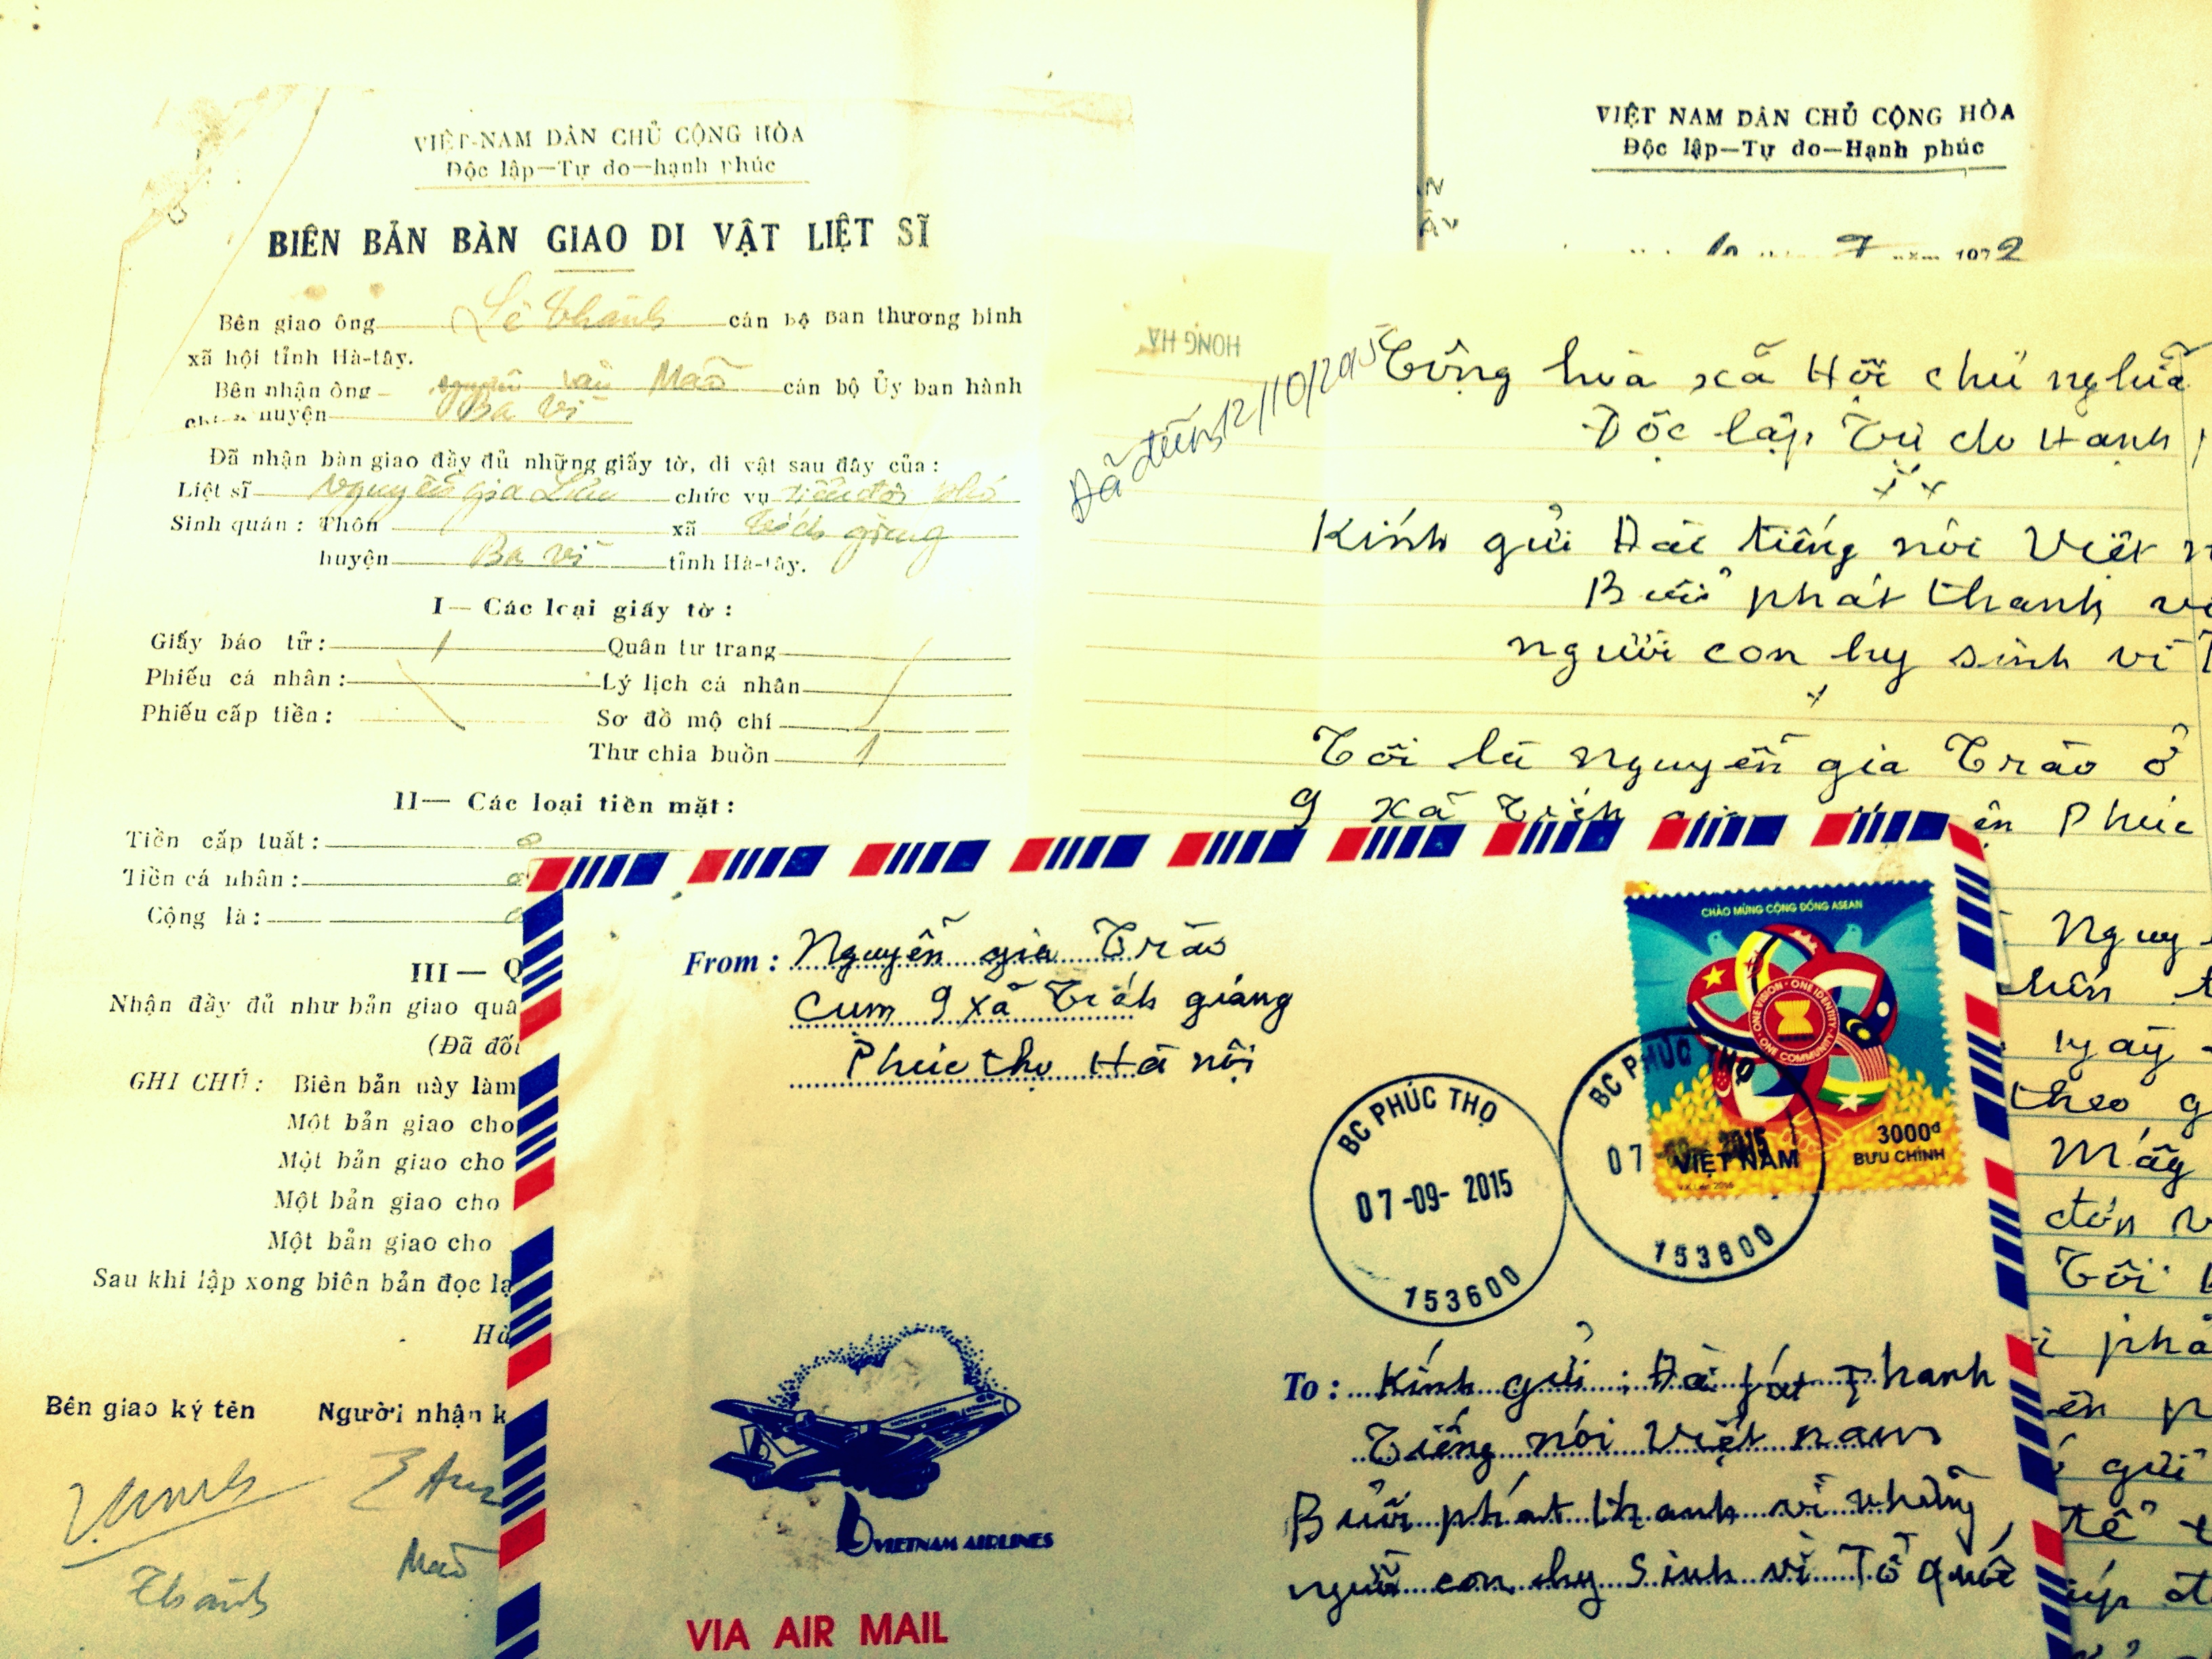 VIỆT-NAM DÂN CHỦ CỘNG HÒA
Độc lập—Tự do—hạnh phúc
BIÊN BẢN BÀN GIAO DI VẬT LIỆT SĨ
Bên giao ông Lê Thành cán bộ Ban thương binh
xã hội tỉnh Hà-tây.
Bên nhận ông nguyễn văn Mão cán bộ Ủy ban hành
huyện Ba vì
Đã nhận bàn giao đầy đủ những giấy tờ, di vật sau đây của:
Liệt sĩ Nguyễn gia chức vụ tiểu đội phó
Sinh quán: Thôn xã Tích giang
huyện Ba vì tỉnh Hà-tây.
I— Các loại giấy tờ:
Giấy báo tử: 1 Quân tư trang
Phiếu cá nhân: Lý lịch cá nhân
Phiếu cấp tiền: Sơ đồ mộ chí
Thư chia buồn 1
II— Các loại tiền mặt:
Tiền cấp tuất:
Tiền cá nhân:
Cộng là:
III— Q
Nhận đầy đủ như bản giao quâ
(Đã đối
GHI CHÚ: Biên bản này làm
Một bản giao cho
Một bản giao cho
Một bản giao cho
Một bản giao cho
Sau khi lập xong biên bản đọc lạ
Hà
Bên giao ký tên Người nhận k
Thành
Mão
VIỆT NAM DÂN CHỦ CỘNG HÒA
Độc lập—Tự do—Hạnh phúc
năm 1972
HONG HA
Đã đến 12/10/2015
Cộng hòa xã Hội chủ nghĩa
Độc lập Tự do Hạnh
Kính gửi Đài tiếng nói Việt n
Buổi phát thanh về
người con hy sinh vì T
Tôi là Nguyễn gia Trào ở
9 xã Tích Phúc
Nguy
ngày
theo g
Mấy
đơn v
Tôi
phá
gửi
From: Nguyễn gia Trào
Cụm 9 xã Tích giang
Phúc thọ Hà nội
CHÀO MỪNG CỘNG ĐỒNG ASEAN
ONE VISION · ONE IDENTITY · ONE COMMUNITY
3000đ
VIỆT NAM
BƯU CHÍNH
BC PHÚC THỌ
07-09-2015
153600
BC PHÚC THỌ
07 2015
153600
VIETNAM AIRLINES
VIA AIR MAIL
To: Kính gửi: Đài phát thanh
Tiếng nói Việt nam
Buổi phát thanh về những
người con hy Sinh vì Tổ quốc